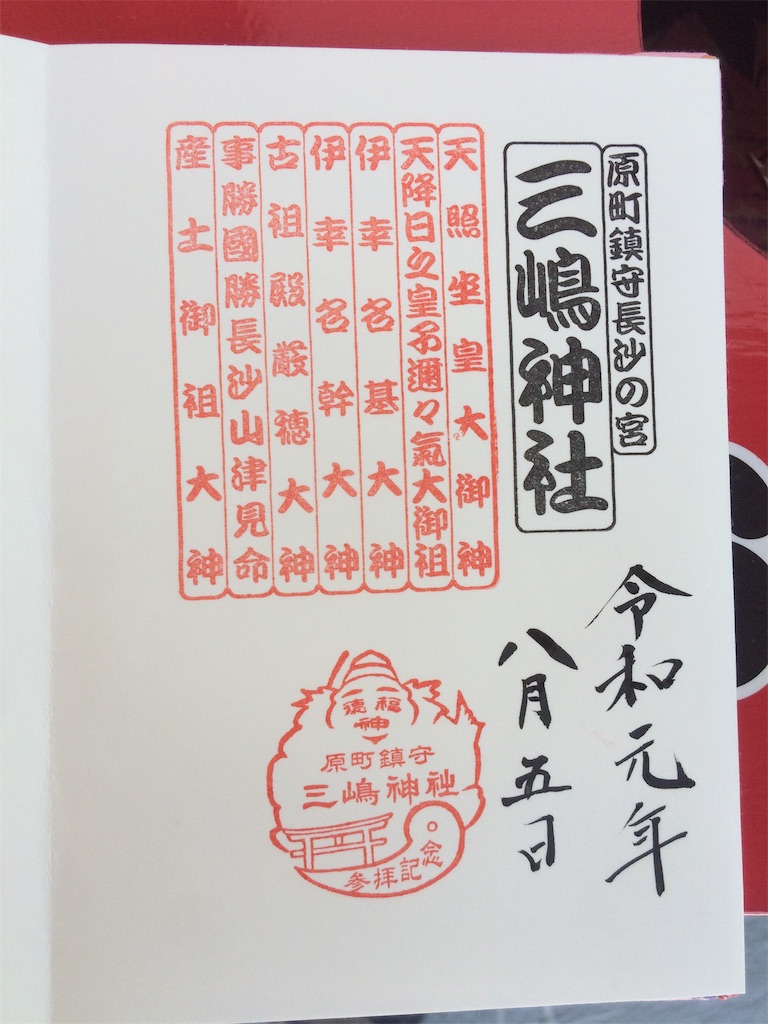 原町鎮守長沙の宮
三嶋神社
令和元年
八月五日
天照坐皇大御神
天降日之皇子邇々氣大御祖
伊幸名基大神
伊幸名幹大神
古祖殿厳徳大神
事勝國勝長沙山津見命
産土御祖大神
福徳神
原町鎮守
三嶋神社
参拝記念